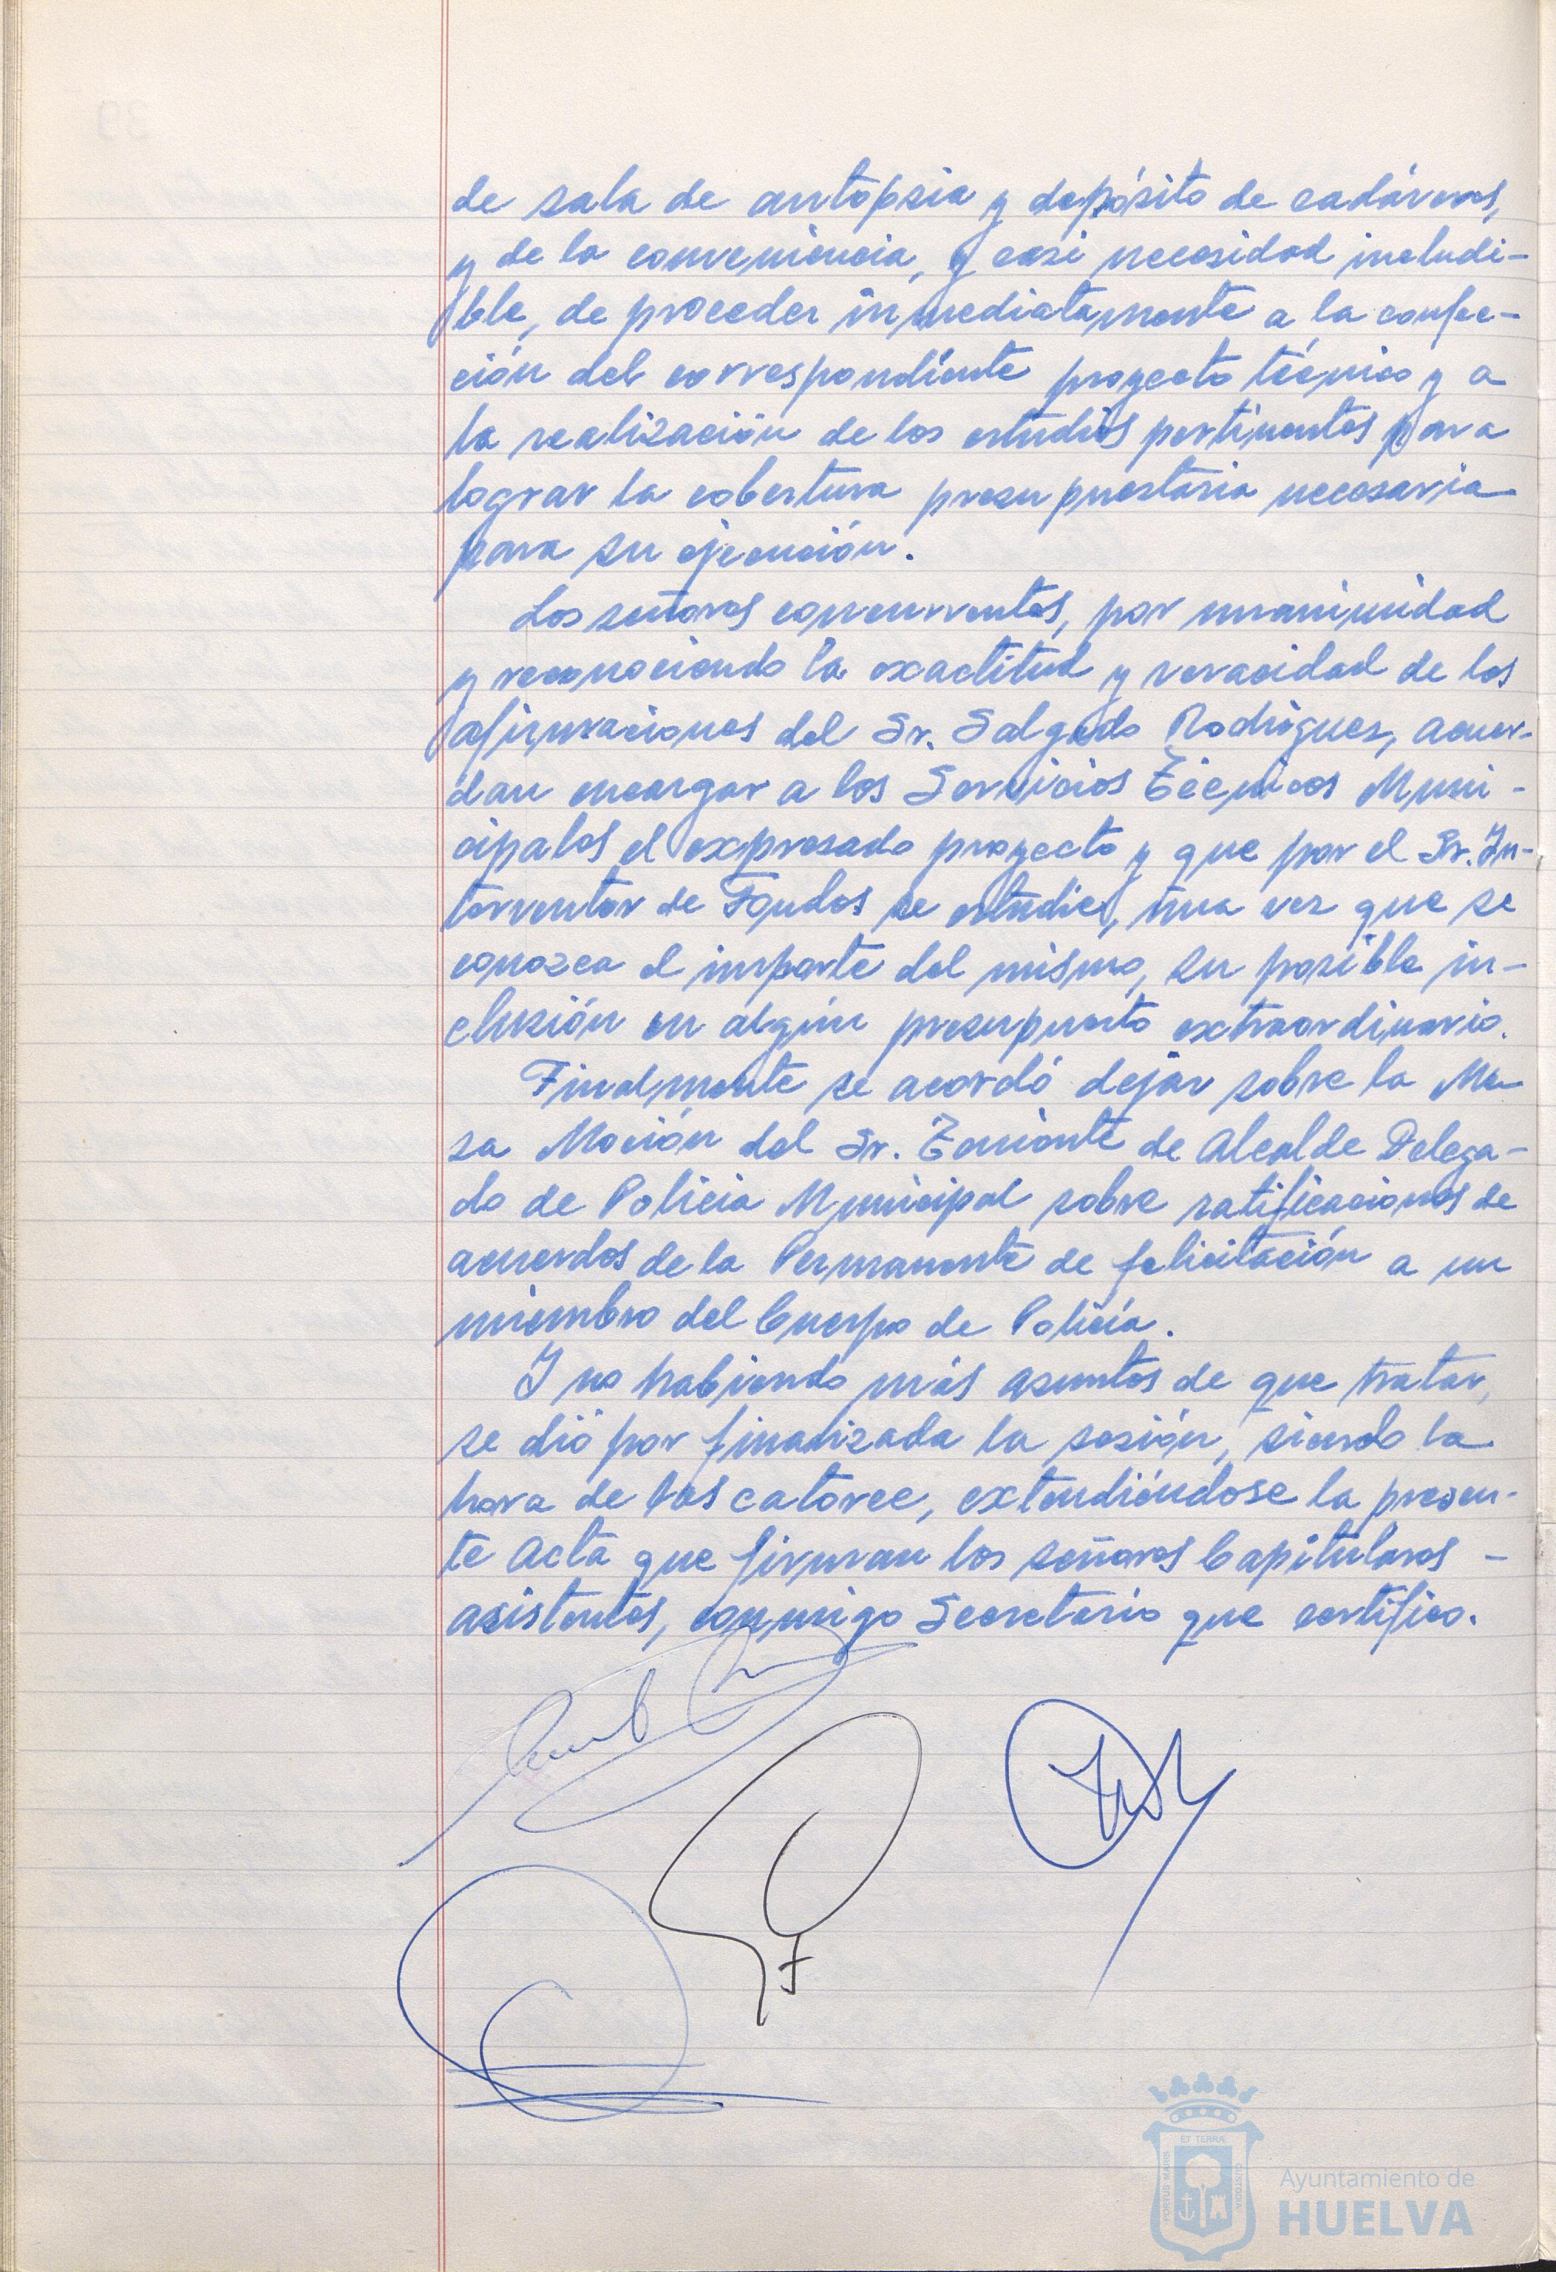 de sala de autopsia y depósito de cadáveres,
y de la conveniencia, y casi necesidad includi-
ble, de proceder inmediatamente a la confec-
ción del correspondiente proyecto técnico y a
la realización de los estudios pertinentes para
lograr la cobertura presupuestaria necesaria
para su ejecución.
Los señores concurrentes, por unanimidad
y reconociendo la exactitud y veracidad de las
afirmaciones del Sr. Salgado Rodríguez, acuer-
dan encargar a los Servicios Técnicos Muni-
cipales el expresado proyecto y que por el Sr. In-
terventor de Fondos se estudie, una vez que se
conozca el importe del mismo, su posible in-
clusión en algún presupuesto extraordinario.
Finalmente se acordó dejar sobre la Me-
sa Moción del Sr. Teniente de Alcalde Delega-
do de Policia Municipal sobre ratificaciones de
acuerdos de la Permanente de felicitación a un
miembro del Cuerpo de Policía.
Y no habiendo más asuntos de que tratar,
se dió por finalizada la sesión, siendo la
hora de las catorce, extendiéndose la presen-
te Acta que firman los señores Capitulares -
asistentes, conmigo Secretario que certifico.
ET TERRÆ
PORTUS MARIS
CUSTODIA
Ayuntamiento de
HUELVA